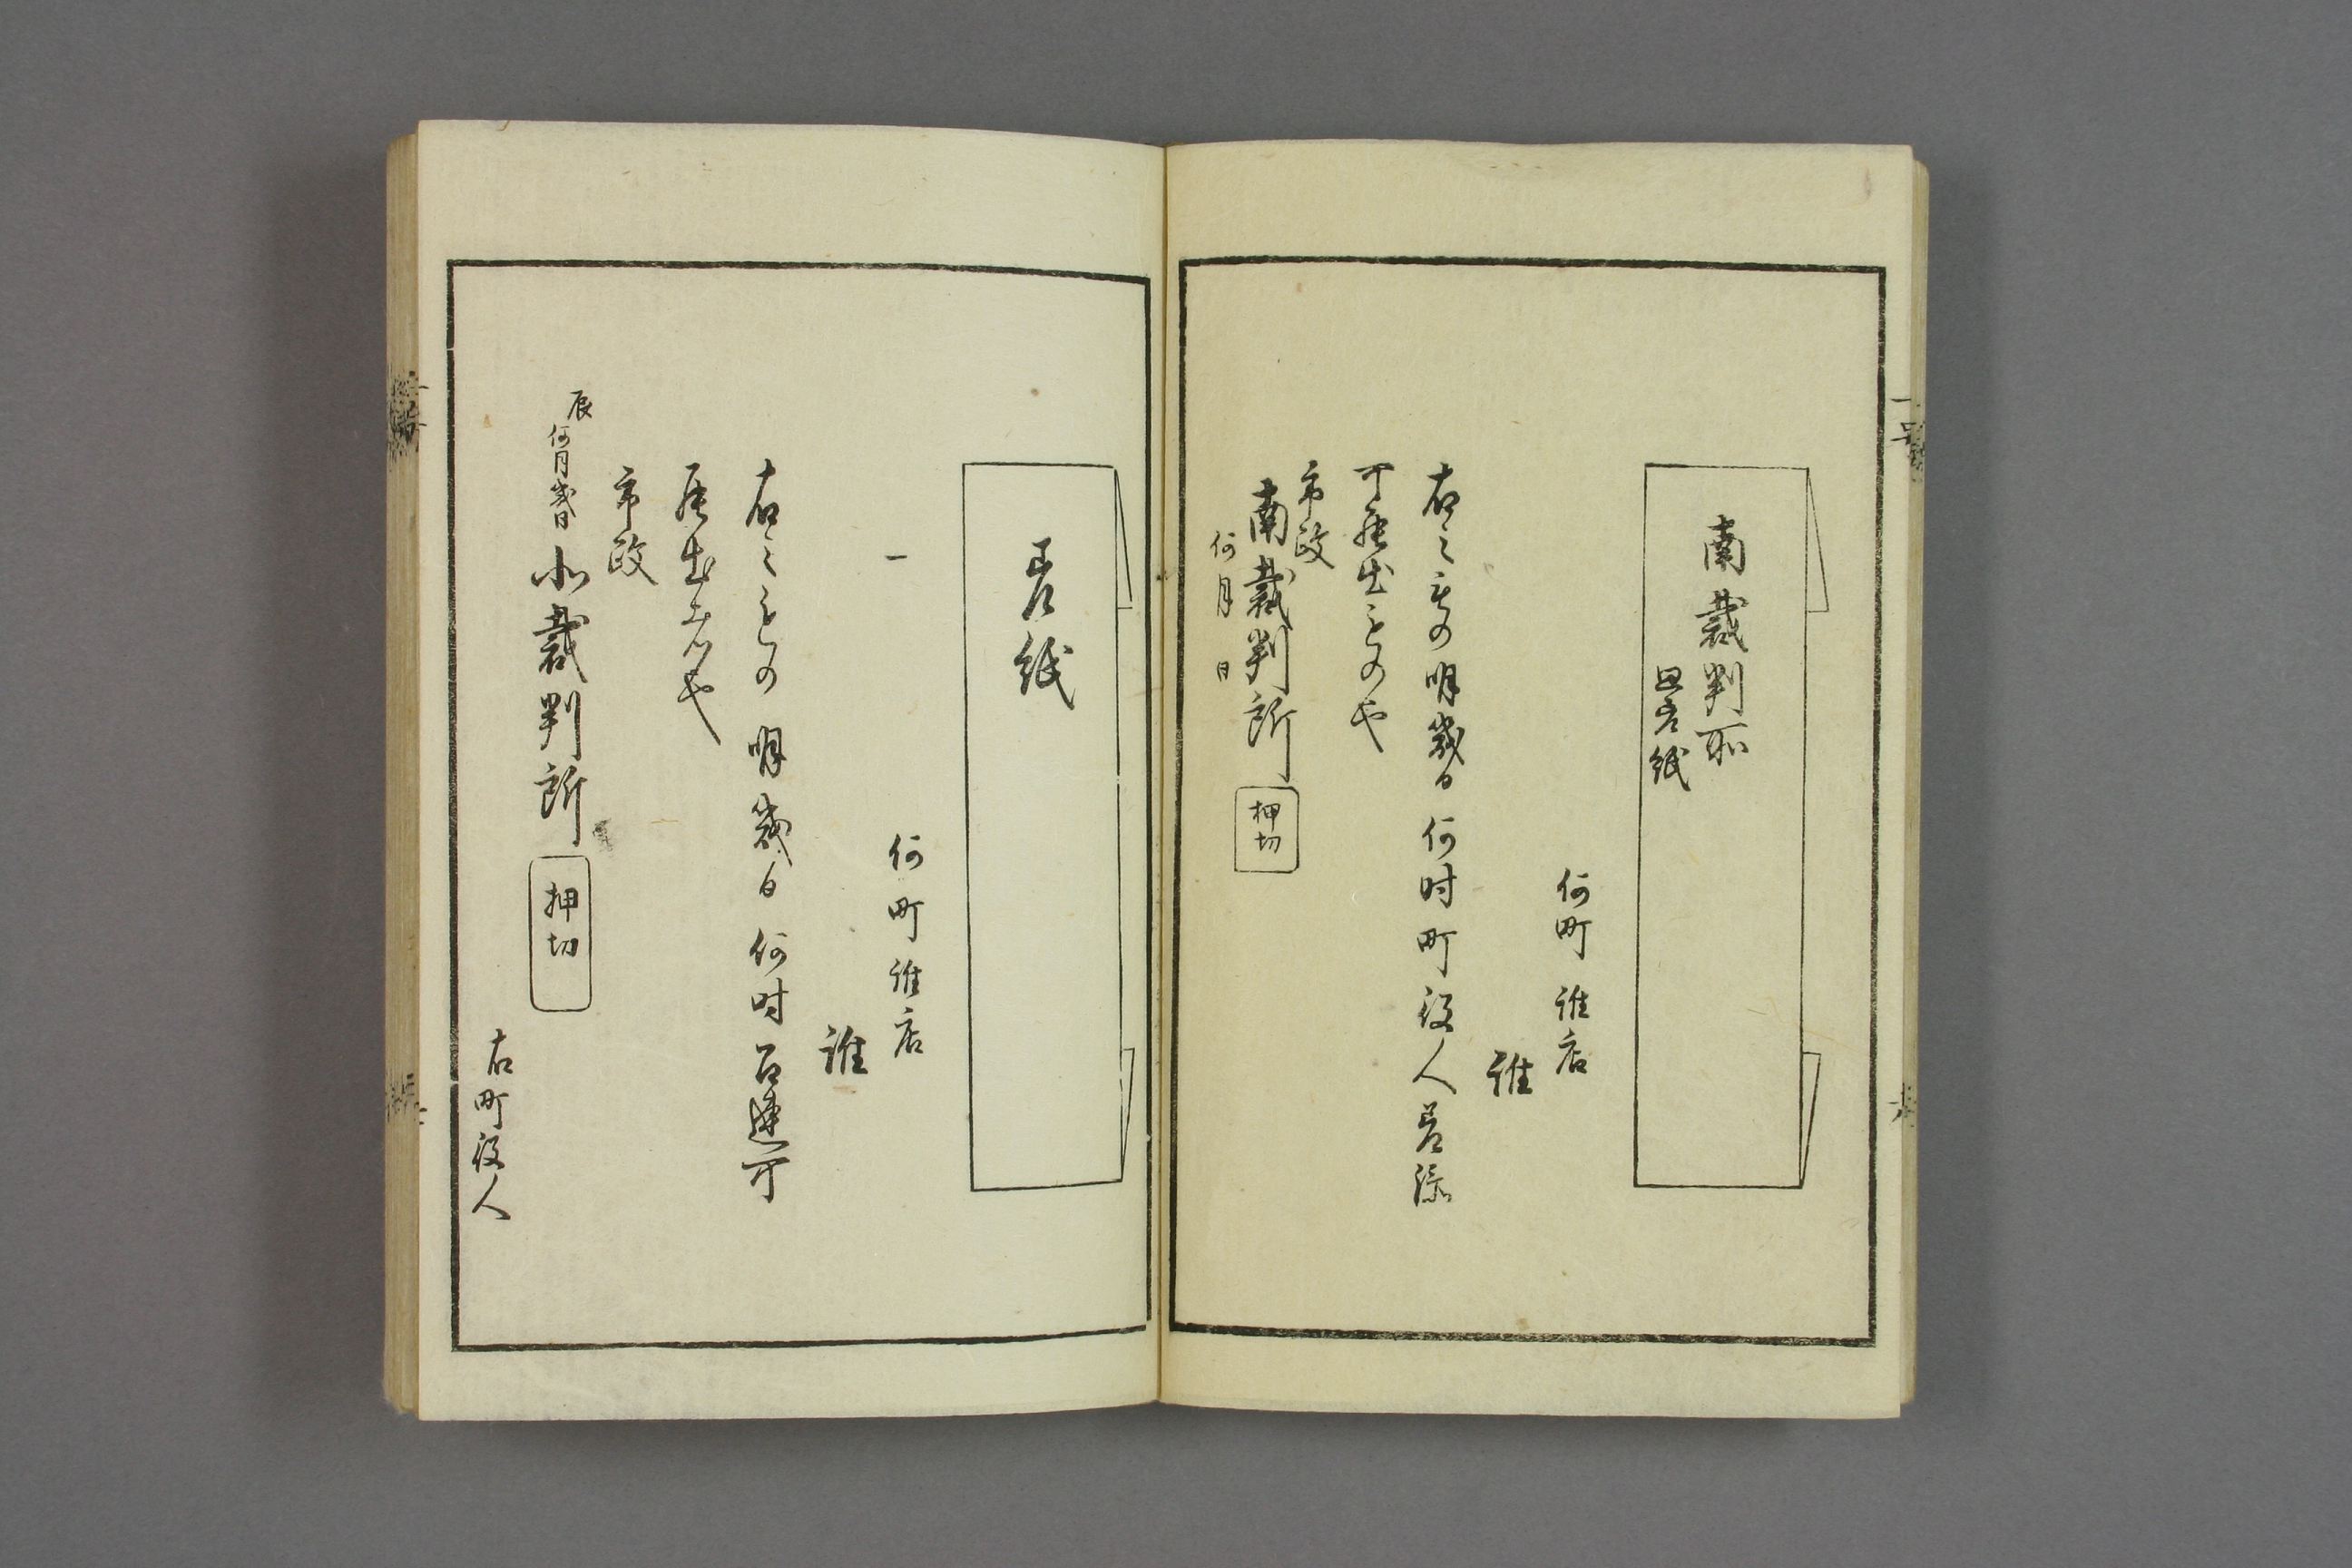 南裁判所
差紙
何町誰店
誰
右之もの明幾日何时町役人差添
可罷出もの也
市政
南裁判所
押切
何月 日
差紙
一
何町誰店
誰
右之もの明幾日何时召連可
罷出者也
市政
辰何月幾日
北裁判所
押切
右町役人